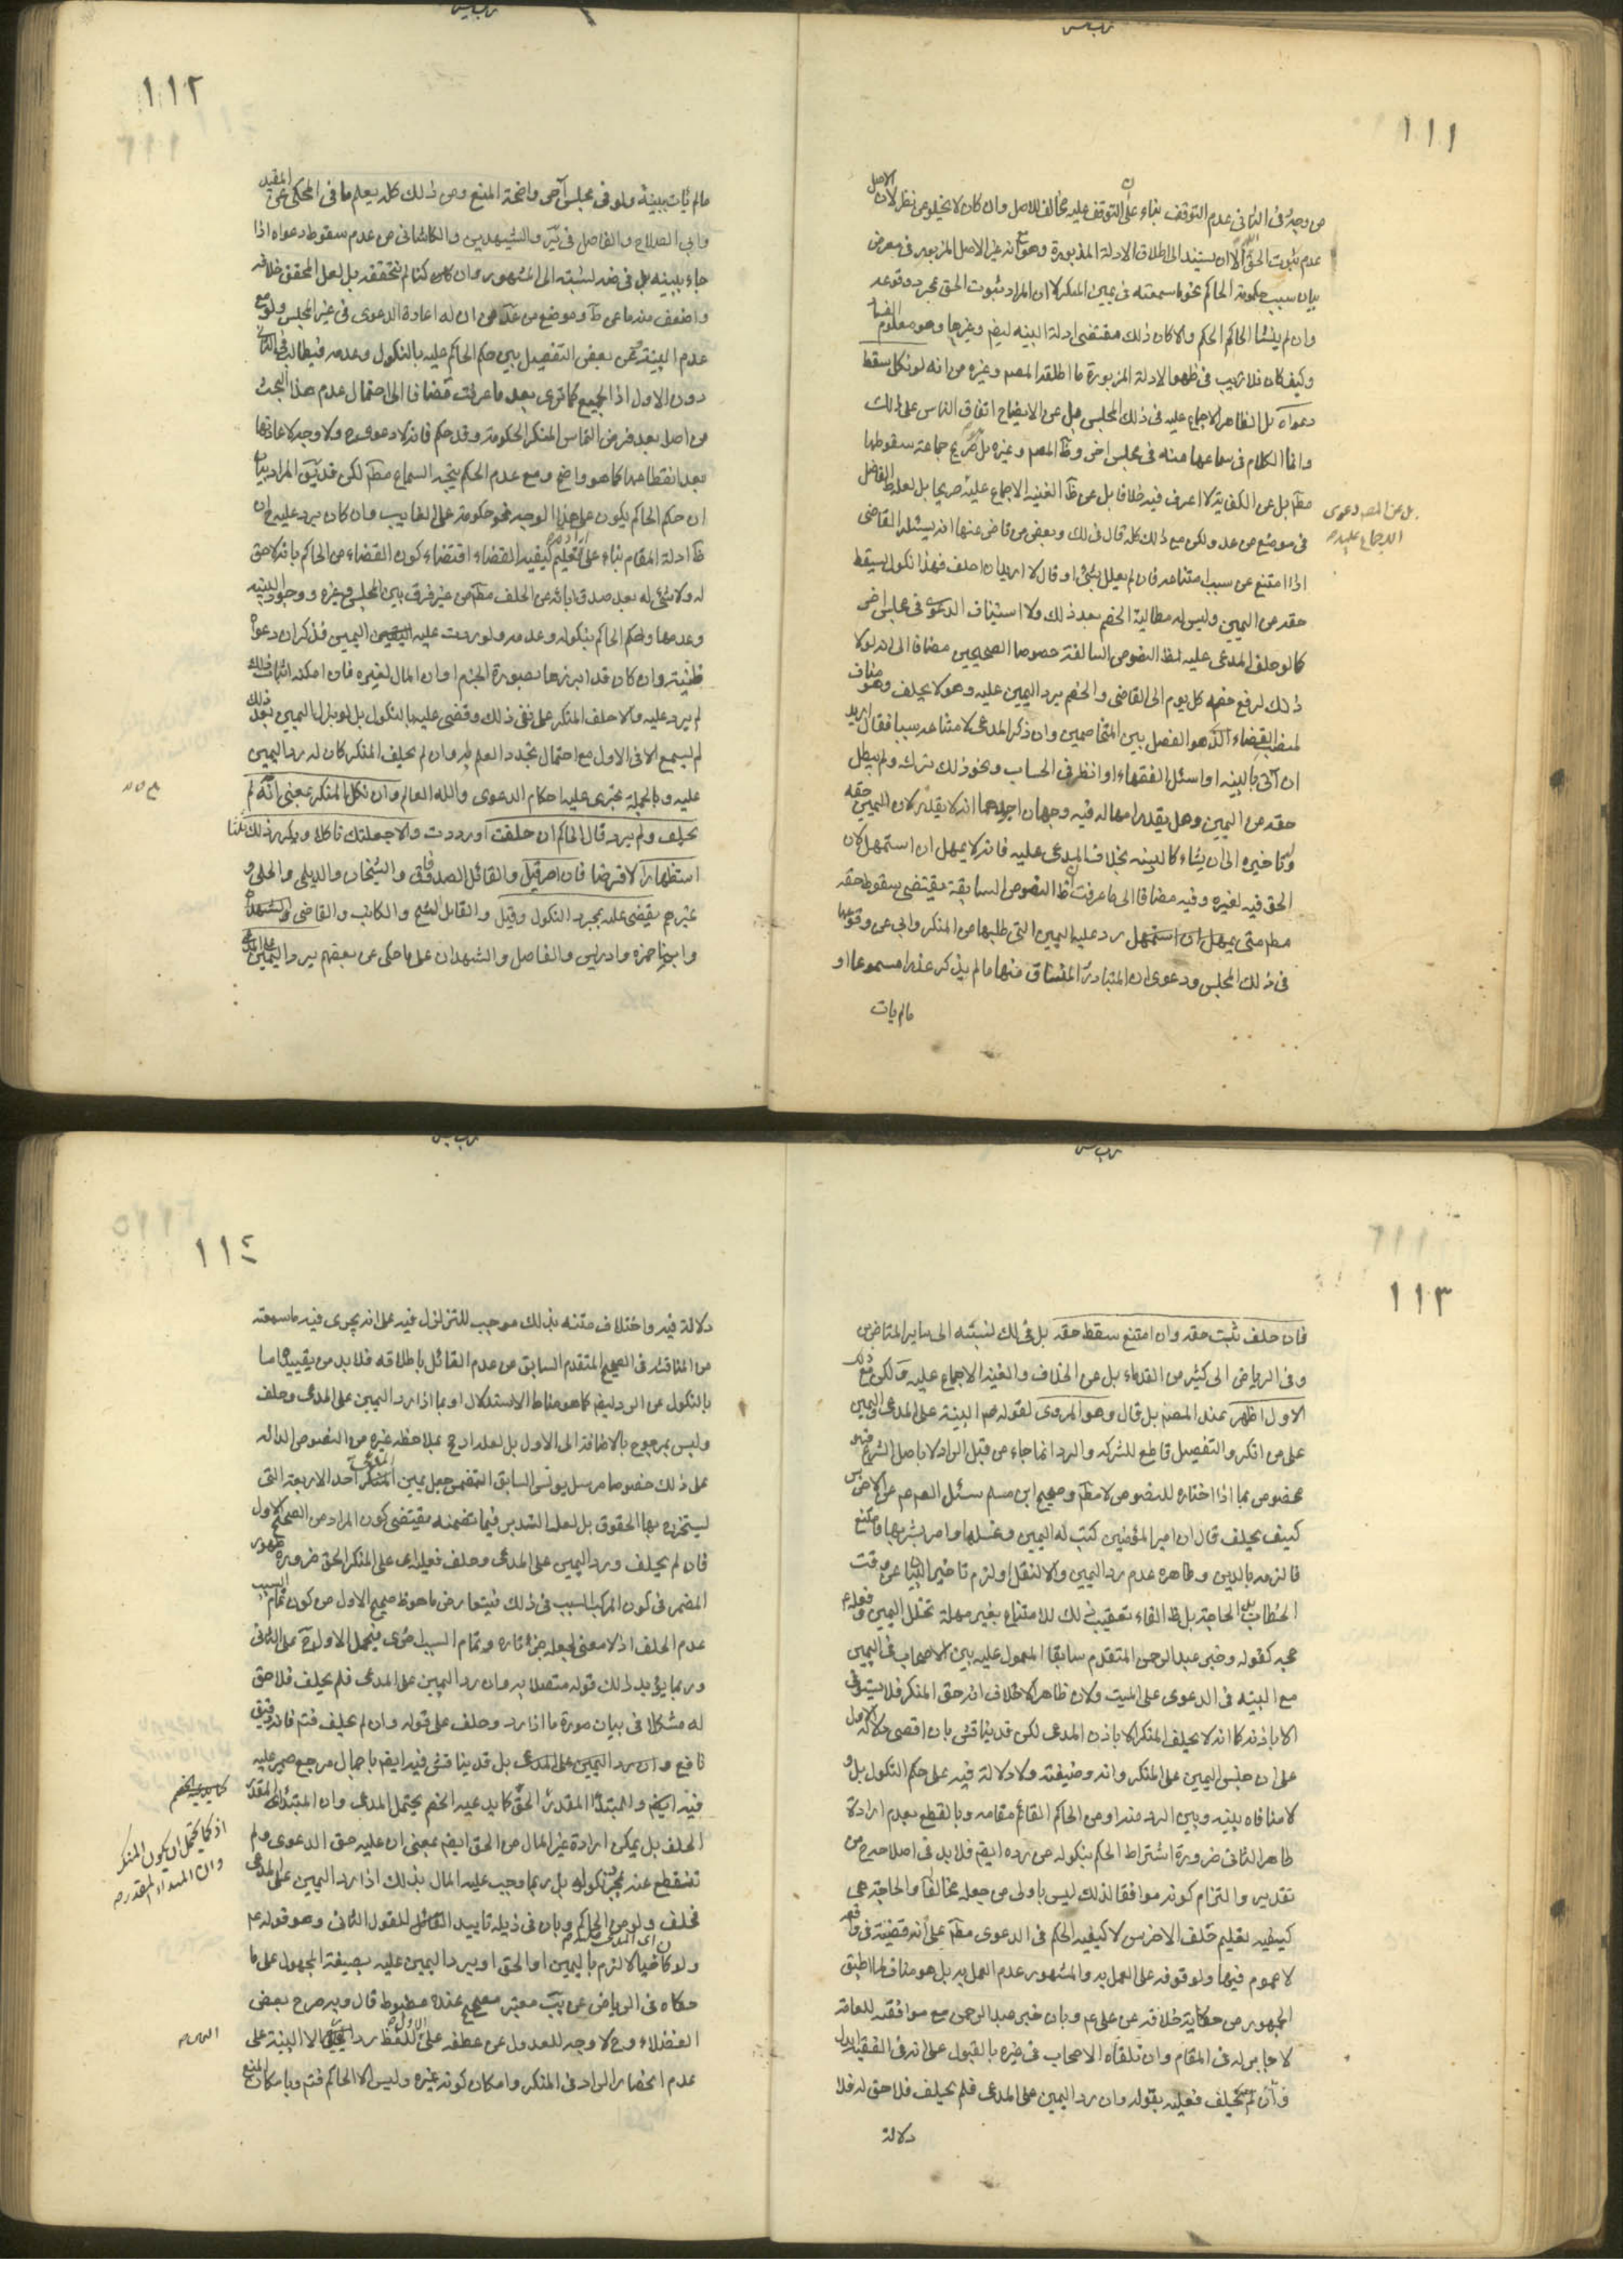 ١١١
من وجه فى الثانى عدم التوقف بناء على التوقف عليه مخالف للاصل وان كان لا يخلو عن نظر لان الاصل
عدم ثبوت الحق الا ان يستند الى اطلاق الادلة المذبورة وهو انه غير الاصل المزبور فى معرض
بيان سبب حكومة الحاكم نحو ما سمعته فى يمين المنكر لا ان المراد ثبوت الحق بمجرد وقوعه
وان لم ينشأ الحاكم الحكم والا كان ذلك مقتضى ادلة البينه ايضا وغيرها وهو معلوم الفساد
وكيف كان فلا ريب فى ظهور الادلة المزبورة ما اطلقه المصم وغيره من انه لو نكل سقط
دعواه بل الظاهر الاجماع عليه فى ذلك المجلس بل عن الايضاح اتفاق الناس على ذلك
وانما الكلام فى سماعها منه فى مجلس اخر وظ المصم وغيره بل صريح جماعة سقوطها
مطم بل عن الكفاية لا اعرف فيه خلافا بل عن ظ الغنيه الاجماع عليه صريحا بل لعله ظ الفاضل
بل عن المصم دعوى الاجماع عليه صم
فى موضع من عد ولكن مع ذلك كله قال فى لك وبعض من قاض عنها انه يسئله القاضى
اذا امتنع عن سبب امتناعه فان لم يعلل بشئ او قال لا اريد ان احلف فهذا نكول يسقط
حقه من اليمين وليس له مطالبة الخصم بعد ذلك ولا استيناف الدعوى فى مجلس اخر
كما لو حلف المدعى عليه لظ النصوص السالفة خصوصا الصحيحين مضافا الى انه لولا
ذلك لرفع خصمه كل يوم الى القاضى والخصم يرد اليمين عليه وهو لا يحلف وهو مناف
لمنصب القضاء الذى هو الفصل بين المتخاصمين وان ذكر المدعى لامتناعه سببا فقال اريد
ان آتى بالبينه او اسئل الفقهاء او انظر فى الحساب ونحو ذلك ترك ولم يبطل
حقه من اليمين وهل يقدر امهاله فيه وجهان احدهما انه لا يقدر لان اليمين حقه
وتاخيره الى ان يشاء كالبينه بخلاف المدعى عليه فانه لا يمهل ان استمهل لان
الحق فيه لغيره وفيه مضافا الى ما عرفت ان ظ النصوص السابقة يقتضى سقوط حقه
مطم متى يمهل ان استمهل رد عليه اليمين التى طلبها من المنكر وابى عن وقوعها
فى ذلك المجلس ودعوى ان المتبادر المنساق منها ما لم يذكر عذرا مسموعا او
مالم يات
١١٢
مالم يات ببينة ولو فى مجلس آخر واضحة المنع ومن ذلك كله يعلم ما فى المحكى عن المفيد
وابى الصلاح والفاضل فى ير والشهيدين والكاشانى من عدم سقوط دعواه اذا
جاء ببينه بل فى ضه نسبته الى المشهور وان كنا لم نتحققه بل لعل المحقق خلافه
واضعف منه ما عن ط وموضع من عد من ان له اعادة الدعوى فى غير المجلس ولو مع
عدم البينة وعن بعض التفصيل بين حكم الحاكم عليه بالنكول وعدمه فيطالب فى الثانى
دون الاول اذ الجميع كما ترى بعد ما عرفت مضافا الى احتمال عدم هذا البحث
من اصل بعد فرض التماس المنكر الحكومة وقد حكم فانه لا دعوى ولا وجه لاعادتها
بعد انقطاعها كما هو واضح ومع عدم الحكم يتجه السماع مطم لكن قد يق المراد بيان
ان حكم الحاكم يكون على هذا الوجه نحو حكومته على الغايب وان كان يرد عليه ان
ظ ادلة المقام بناء على تعليم كيفيه القضاء اقتضاء كون القضاء من الحاكم بانه لا حق
له ولا شئ له بعد صدق ابائه عن الحلف مطم من غير فرق بين المجلس وغيره ووجود البينه
وعدمها وحكم الحاكم بنكوله وعدمه ولو ردت عليه اليمين فذكر ان دعواه
ظنية وان كان قد ابرزها بصورة الجزم او ان المال لغيره فان امكنه اثبات ذلك
لم يرد عليه والا حلف المنكر على نفى ذلك وقضى عليه بالنكول بل لو بذل اليمين بعد ذلك
لم يسمع الا فى الاول مع احتمال تجدد العلم به وان لم يحلف المنكر كان له رد اليمين
عليه وبالجملة تجرى عليه احكام الدعوى والله العالم وان نكل المنكر بمعنى انه لم
يحلف ولم يرد قال الحاكم ان حلفت او رددت والا جعلتك ناكلا ويكرر ذلك ثلثا
استظهارا لا فرضا فان اصر قيل والقائل الصدوقان والشيخان والديلمى والحلبى و
غيرهم يقضى عليه بمجرد النكول وقيل والقايل الشيخ والكاتب والقاضى والشهيد
وابنا حمزه وادريس والفاضل والشهيدان على ما حكى عن بعضهم يرد اليمين على المدعى
١١٣
فان حلف ثبت حقه وان امتنع سقط حقه بل فى لك نسبته الى ساير المتاخرين
وفى الرياض الى كثير من القدماء بل عن الخلاف والغنيه الاجماع عليه ولكن مع ذلك
الاول اظهر عند المصم بل قال وهو المروى لقوله صم البينة على المدعى واليمين
على من انكر والتفصيل قاطع للشركه والرد انما جاء من قبل الراد لا باصل الشرع فهو
مخصوص بما اذا اختاره للنصوص لا مطم وصحيح ابن مسلم سئل الصم عم عن الاخرس
كيف يحلف قال ان امير المؤمنين كتب له اليمين وغسلها وامر بشربها فامتنع
فالزمه بالدين وظاهره عدم رد اليمين والا لنقل او لزم تاخير البيان عن وقت
الخطاب بل الحاجة بل ظ الفاء تعقيب ذلك للامتناع بغير مهلة تخلل اليمين وفعله عم
حجه كقوله وخبر عبد الرحمن المتقدم سابقا المعمول عليه بين الاصحاب فى اليمين
مع البينه فى الدعوى على الميت ولان ظاهر الاخلاف انه حق المنكر فلا يستوفى
الا باذنه كما انه لا يحلف المنكر الا باذن المدعى لكن قد يناقش بان اقصى دلالة الاول
على ان جنس اليمين على المنكر وانه وضيفته ولا دلالة فيه على حكم النكول بل و
لا منافاه بينه وبين الرد منه او من الحاكم القائم مقامه وبالقطع بعدم ارادة
ظاهر الثانى ضرورة اشتراط الحكم بنكوله من رده ايضم فلا بد فى اصلاحه من
تقدير والتزام كونه موافقا لذلك ليس باولى من جعله مخالفا والحاجة هى
كيفيه تعليم حلف الاخرس لا كيفيه الحكم فى الدعوى مطم على انه قضيته فى واقعه
لا عموم فيها ولو قوفه على العمل به والمشهور عدم العمل به بل هو مناف لما اطبق
الجمهور من حكاية خلافه عن على عم وبان خبر عبد الرحمن مع موافقته للعامة
لا جابر له فى المقام وان تلقاه الاصحاب فى غيره بالقبول على انه فى الفقيه ابدل
وان لم يحلف فعليه بقوله وان رد اليمين على المدعى فلم يحلف فلا حق له فلا
دلالة
١١٤
دلالة فيه واختلاف متنه بذلك موجب للتزلزل فيه على انه يجرى فيه ما سمعته
من المناقشه فى الصحيح المتقدم السابق من عدم القائل باطلاقه فلا بد من تقييده اما
بالنكول عن الرد ايضم كما هو مناط الاستدلال او بما اذا رد اليمين على المدعى وحلف
وليس بمرجوح بالاضافة الى الاول بل لعله ارجح بملاحظه غيره من النصوص الداله
على ذلك خصوصا مرسل يونس السابق المتضمن جعل يمين المدعى احد الاربعة التى
يستخرج بها الحقوق بل لعل التدبر فيما تضمنه يقتضى كون المراد من الصحيح الاول
فان لم يحلف ورد اليمين على المدعى وحلف فعليه اى على المنكر الحق ضرورة ظهور
المضمر فى كون المركب السبب فى ذلك فيتعارض ما هو ظ صحيح الاول من كون تمام السبب
عدم الحلف اذ لا معنى لجعله جزء تاره وتمام السبب اخرى فيحمل الاول ح على الثانى
وربما يؤيد ذلك قوله متصلا به وان رد اليمين على المدعى فلم يحلف فلا حق
له مشكلا فى بيان صورة ما اذا رد وحلف على قوله وان لم يحلف فتم فانه دقيق
نافع وان رد اليمين على المدعى بل قد يناقش فيه ايضم باجمال مرجع ضمير عليه
فيه ايضم والمبتدأ المقدر الحق كما يدعيه الخصم يحتمل المدعى وان المبتدأ المقدر
اذ كما يحتمل ان يكون المنكر
وان المبتداء المقدر صم
الحلف بل يمكن ارادة غير المال من الحق ايضم بمعنى ان عليه حق الدعوى ولم
تنقطع عنه بمجرد نكوله بل ربما وجب عليه المال بذلك اذا رد اليمين على المدعى
فحلف ولو من الحاكم وبان فى ذيله تاييد للقول الثانى وهو قوله عم
ولو كان حيا لالزم باليمين او الحق او يرد اليمين عليه بصيغة المجهول على ما
حكاه فى الرياض عن يب معتبر صحيح عنده مضبوط قال وبه صرح بعض
الفضلاء وح لا وجه للعدول عن عطفه على اللفظ رد الا البينة على
عدم انحصار الراد فى المنكر وامكان كونه غيره وليس الا الحاكم فتم وبامكان المنع